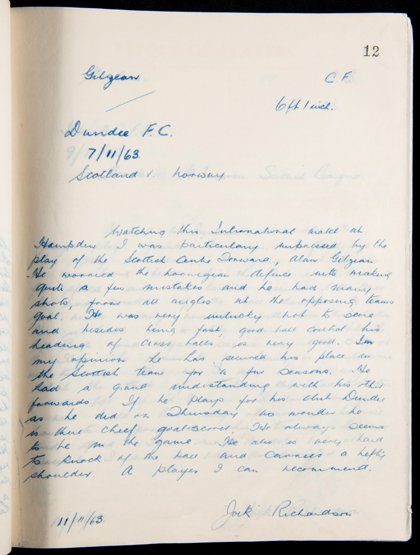 12
Gilzean C.F.
6ft 1 inch.
Dundee F.C.
7/11/63.
Scotland v. Norway
Watching this International match at
Hampden I was particulary impressed by the
play of the Scottish Centre Forward, Alan Gilzean
He worried the Norwegian defence into making
quite a few mistakes and he had many
shots, from all angles at the opposing teams
goal. He was very unlucky not to score
and besides being fast, good ball control his
heading of cross balls is very good. In
my opinion he has secured his place in
the Scottish team for a few seasons. He
had a grand understanding with his other
forwards. If he plays for his club Dundee
as he did on Thursday no wonder he
is their chief goal-scorer. He always seems
to be in the game. He also is very hard
to knock of the ball and carries a hefty
shoulder. A player I can recommend.
11/11/63. Jack Richardson